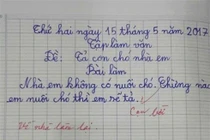 Thứ hai ngày 15 tháng 5 năm 2017
Tập làm văn
Đề: Tả con chó nhà em
Bài làm
Nhà em không có nuôi chó. Chừng nào
em nuôi chó thì em sẽ tả.!
Con lười
Về nhà làm lại